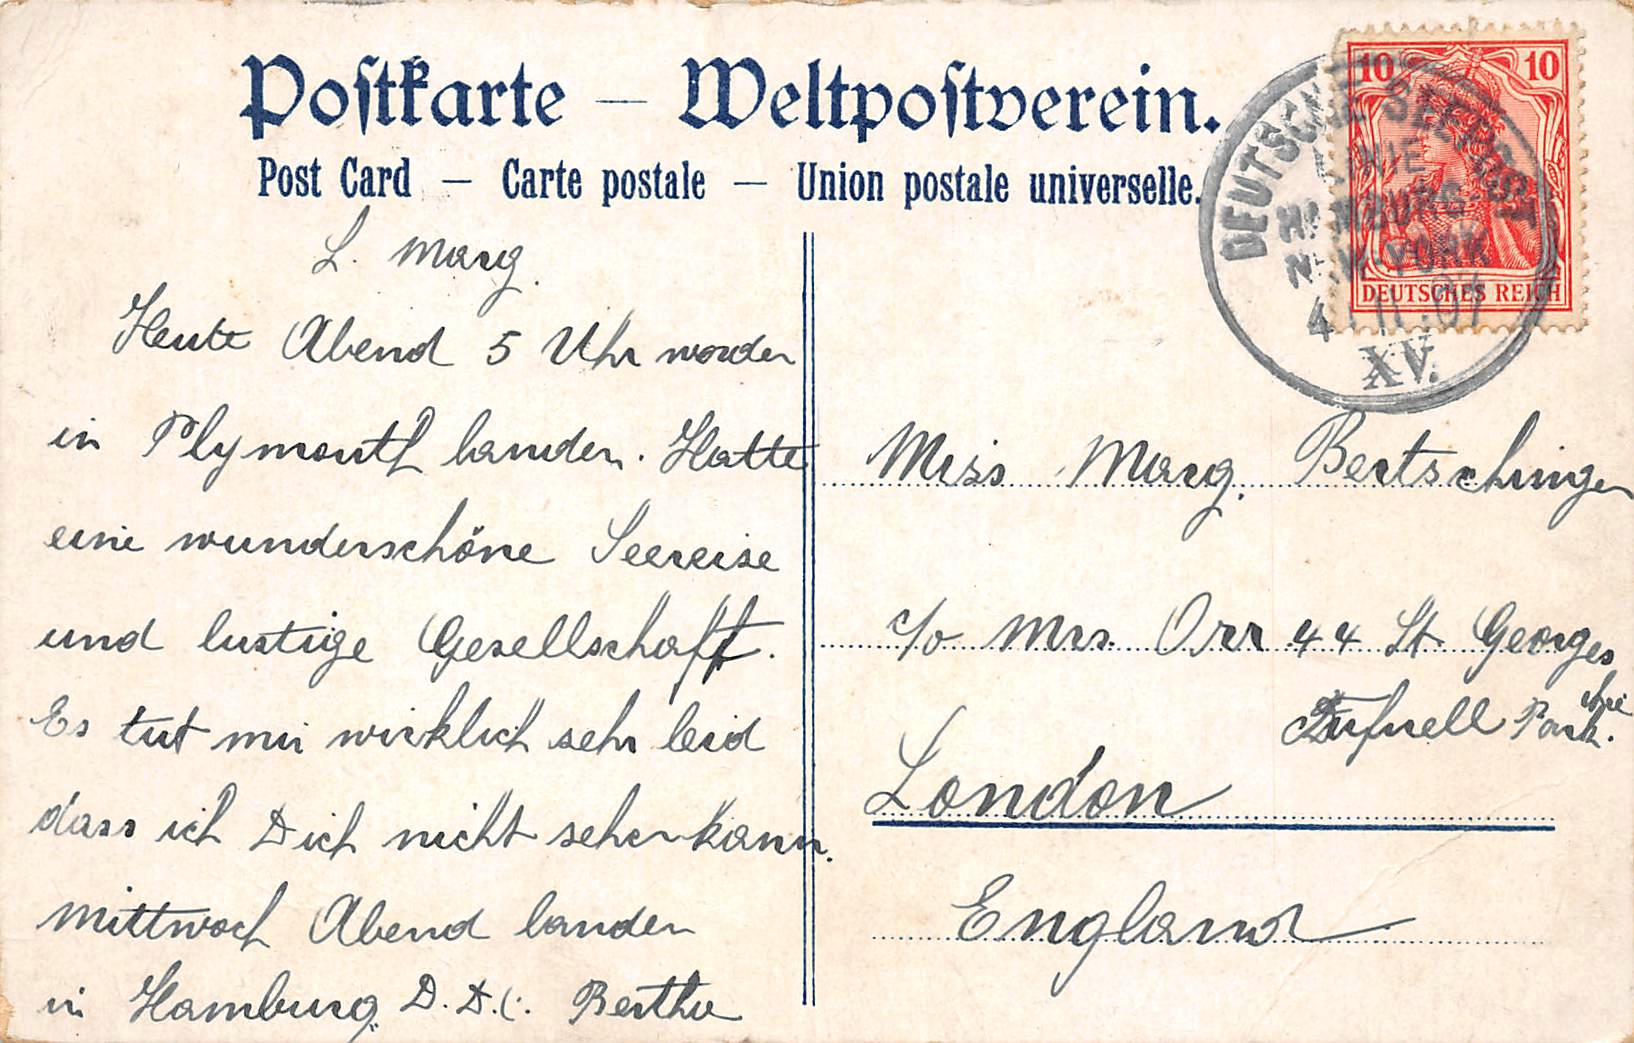 Postkarte — Weltpostverein.
Post Card — Carte postale — Union postale universelle.
10 10
DEUTSCHES REICH
DEUTSCHE SEEPOST
LINIE
HAMBURG-
NEW-YORK
4 11 07
XV.
L. Marg.
Heute Abend 5 Uhr werden
in Plymouth landen. Hatte
eine wunderschöne Seereise
und lustige Gesellschaft.
Es tut mir wirklich sehr leid
dass ich Dich nicht sehen kann.
Mittwoch Abend landen
in Hamburg. D. D. l. Bertha
Miss Marg. Bertschinger
c/o Mrs. Orr 44 St Georges
Ave
Tufnell Park.
London
England